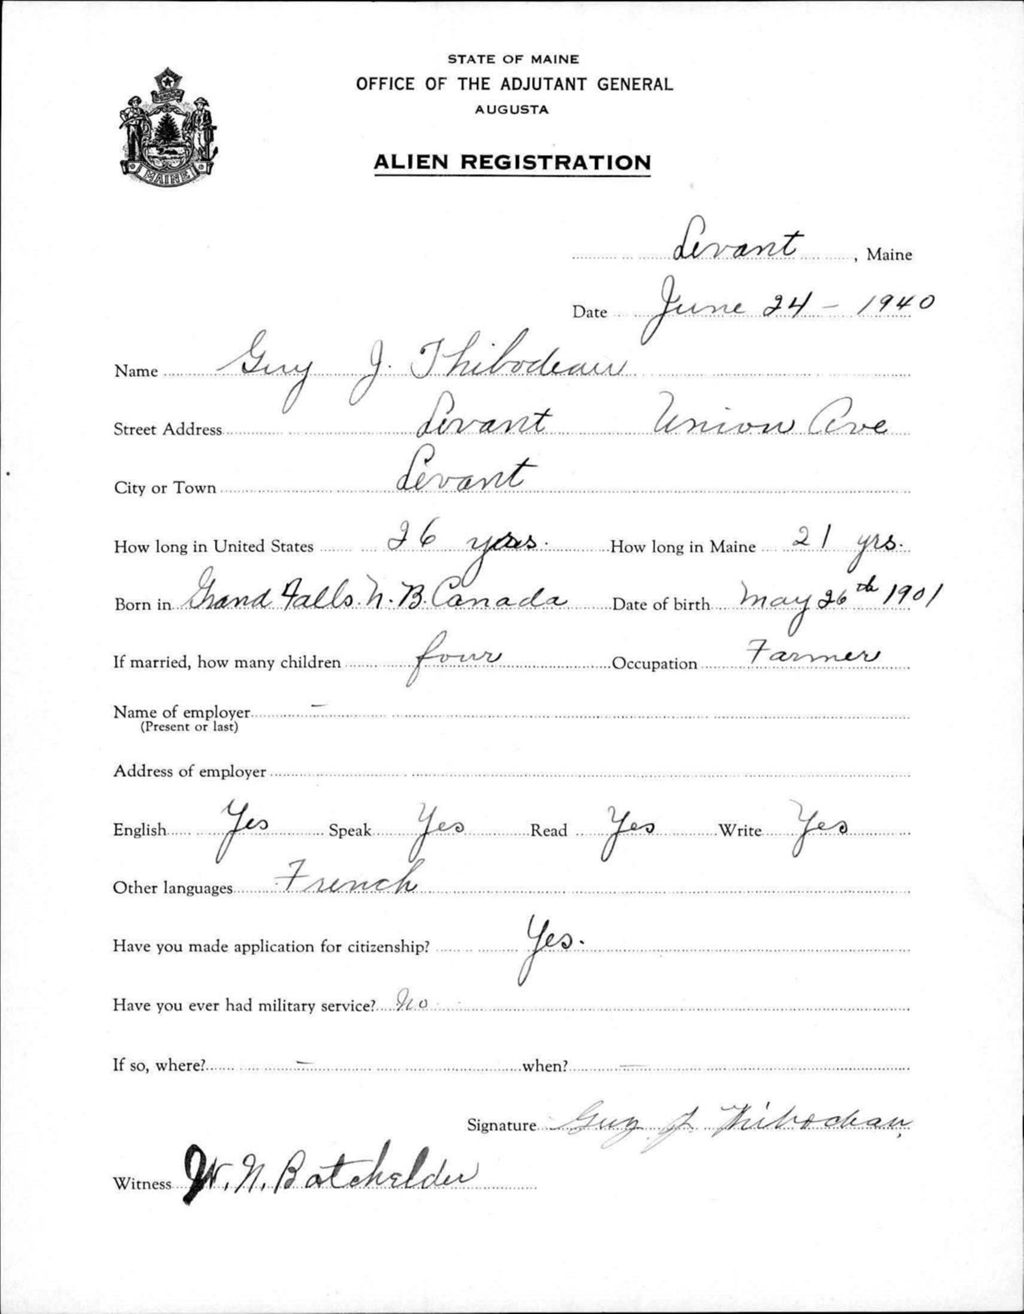 STATE OF MAINE
OFFICE OF THE ADJUTANT GENERAL
AUGUSTA
ALIEN REGISTRATION
MAINE
Levant, Maine
Date June 24 - 1940
Name Guy J. Thibodeau
Street Address Levant Union Ave
City or Town Levant
How long in United States 26 years. How long in Maine 21 yrs.
Born in Grand Falls. N. B. Canada Date of birth May 26th 1901
If married, how many children four Occupation Farmer
Name of employer –
(Present or last)
Address of employer
English Yes Speak Yes Read Yes Write Yes
Other languages French
Have you made application for citizenship? Yes.
Have you ever had military service? No
If so, where? – when? –
Signature Guy J Thibodeau
Witness W. N. Batchelder